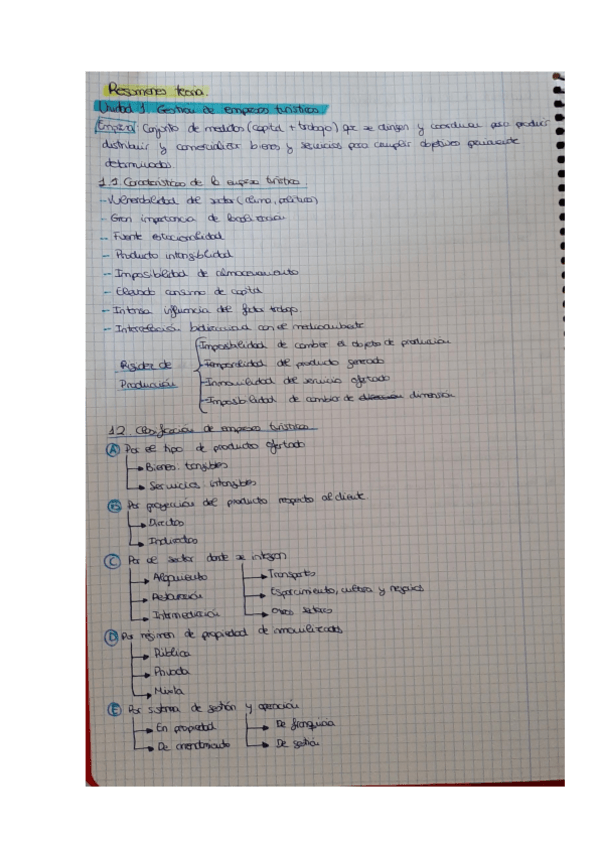 Resumenes teoria.
Unidad 1. Gestion de empresas turísticas
Empresa: Conjunto de medios (capital + trabajo) que se dirigen y coordinan para producir
distribuir y comercializar bienes y servicios para cumplir objetivos previamente
determinados.
1.1 Características de la empresa turística
- Vulnerabilidad del sector (clima, política)
- Gran importancia de localización
- Fuerte estacionalidad
- Producto intangibilidad
- Imposibilidad de almacenamiento
- Elevado consumo de capital
- Intensa influencia del factor trabajo
- Interrelación bidireccional con el medioambiente
Rigidez de Producción
- Imposibilidad de cambiar el objeto de producción
- Temporalidad del producto generado
- Inmovilidad del servicio ofertado
- Imposibilidad de cambiar de dimensión
1.2 Clasificación de empresas turísticas
A Por el tipo de productos ofertado
Bienes tangibles
Servicios intangibles
B Por proyección del producto respecto al cliente
Directos
Indirectos
C Por el sector donde se integran
Alojamiento
Restauración
Intermediación
Transporte
Esparcimiento, cultura y negocios
Otros sectores
D Por régimen de propiedad de inmovilizados
Pública
Privada
Mixta
E Por sistema de gestión y operación
En propiedad
De arrendamiento
De franquicia
De gestión